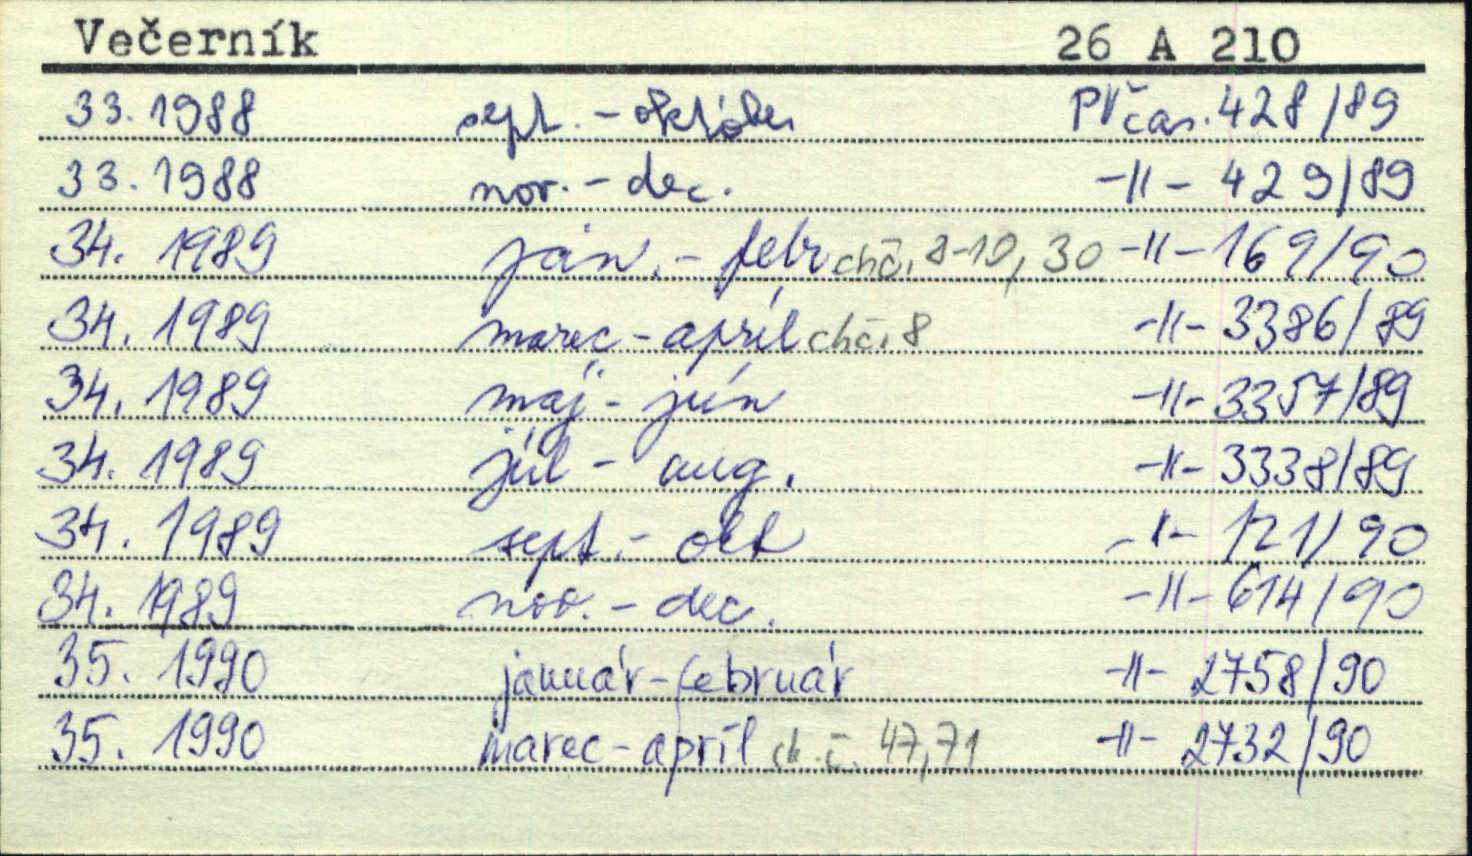 Večerník 26 A 210
33. 1988 sept. - október PVčas. 428/89
33. 1988 nov. - dec. -II- 429/89
34. 1989 ján. - febr chč. 8-10, 30 -II- 169/90
34. 1989 marec - apríl chč. 8 -II- 3386/89
34. 1989 máj - jún -II- 3357/89
34. 1989 júl - aug. -II- 3338/89
34. 1989 sept. - okt -II- 121/90
34. 1989 nov. - dec. -II- 614/90
35. 1990 január - február -II- 2758/90
35. 1990 marec - apríl ch.č. 47,71 -II- 2732/90